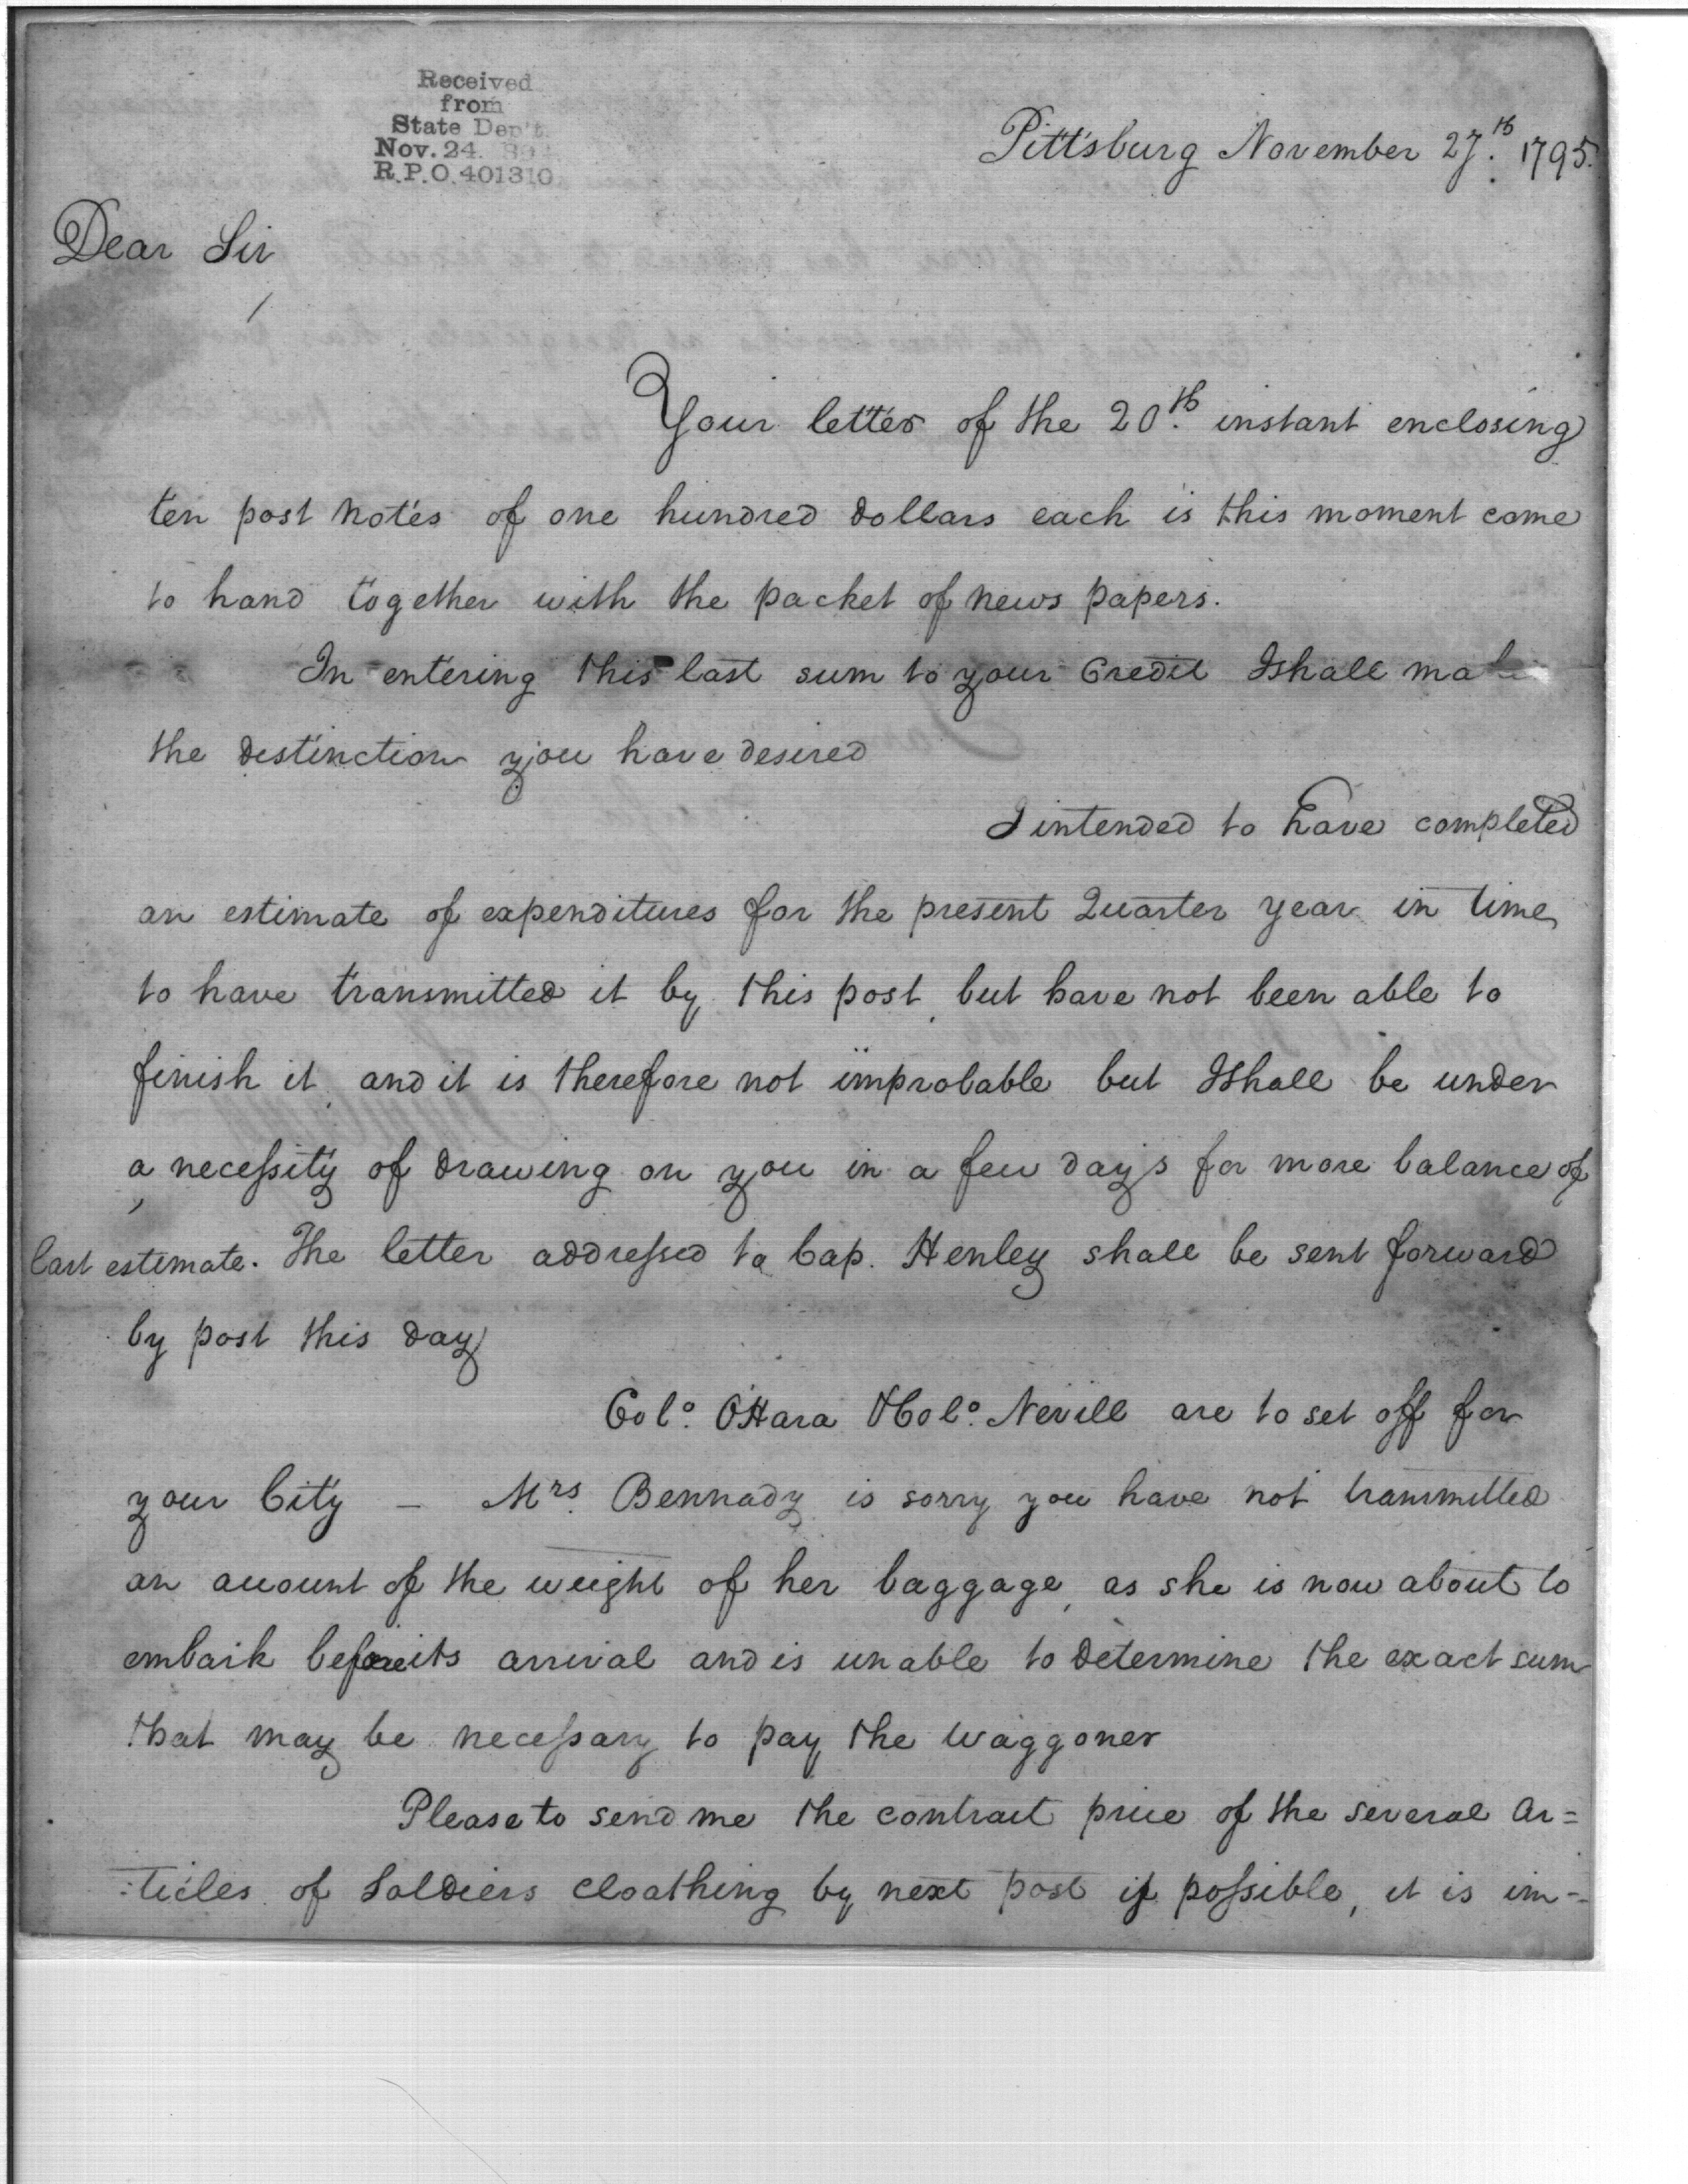 Received
from
State Dep't.
Nov. 24.
R.P.O. 401310
Pittsburg November 27.th 1795.
Dear Sir
Your letter of the 20.th instant enclosing
ten post notes of one hundred dollars each is this moment come
to hand together with the packet of news papers.
In entering this last sum to your Credit I shall make
the distinction you have desired
I intended to have completed
an estimate of expenditures for the present Quarter year in time
to have transmitted it by this post, but have not been able to
finish it, and it is therefore not improbable but I shall be under
a necessity of drawing on you in a few days for more balance of
last estimate. The letter addressed to Cap. Henley shall be sent forward
by post this day
Col.o O'Hara & Col.o Nevill are to set off for
your City – Mrs Bennady is sorry you have not transmitted
an account of the weight of her baggage, as she is now about to
embark before its arrival and is unable to determine the exact sum
that may be necessary to pay the waggoner
Please to send me the contract price of the several ar=
:ticles of Soldiers cloathing by next post if possible, it is im-